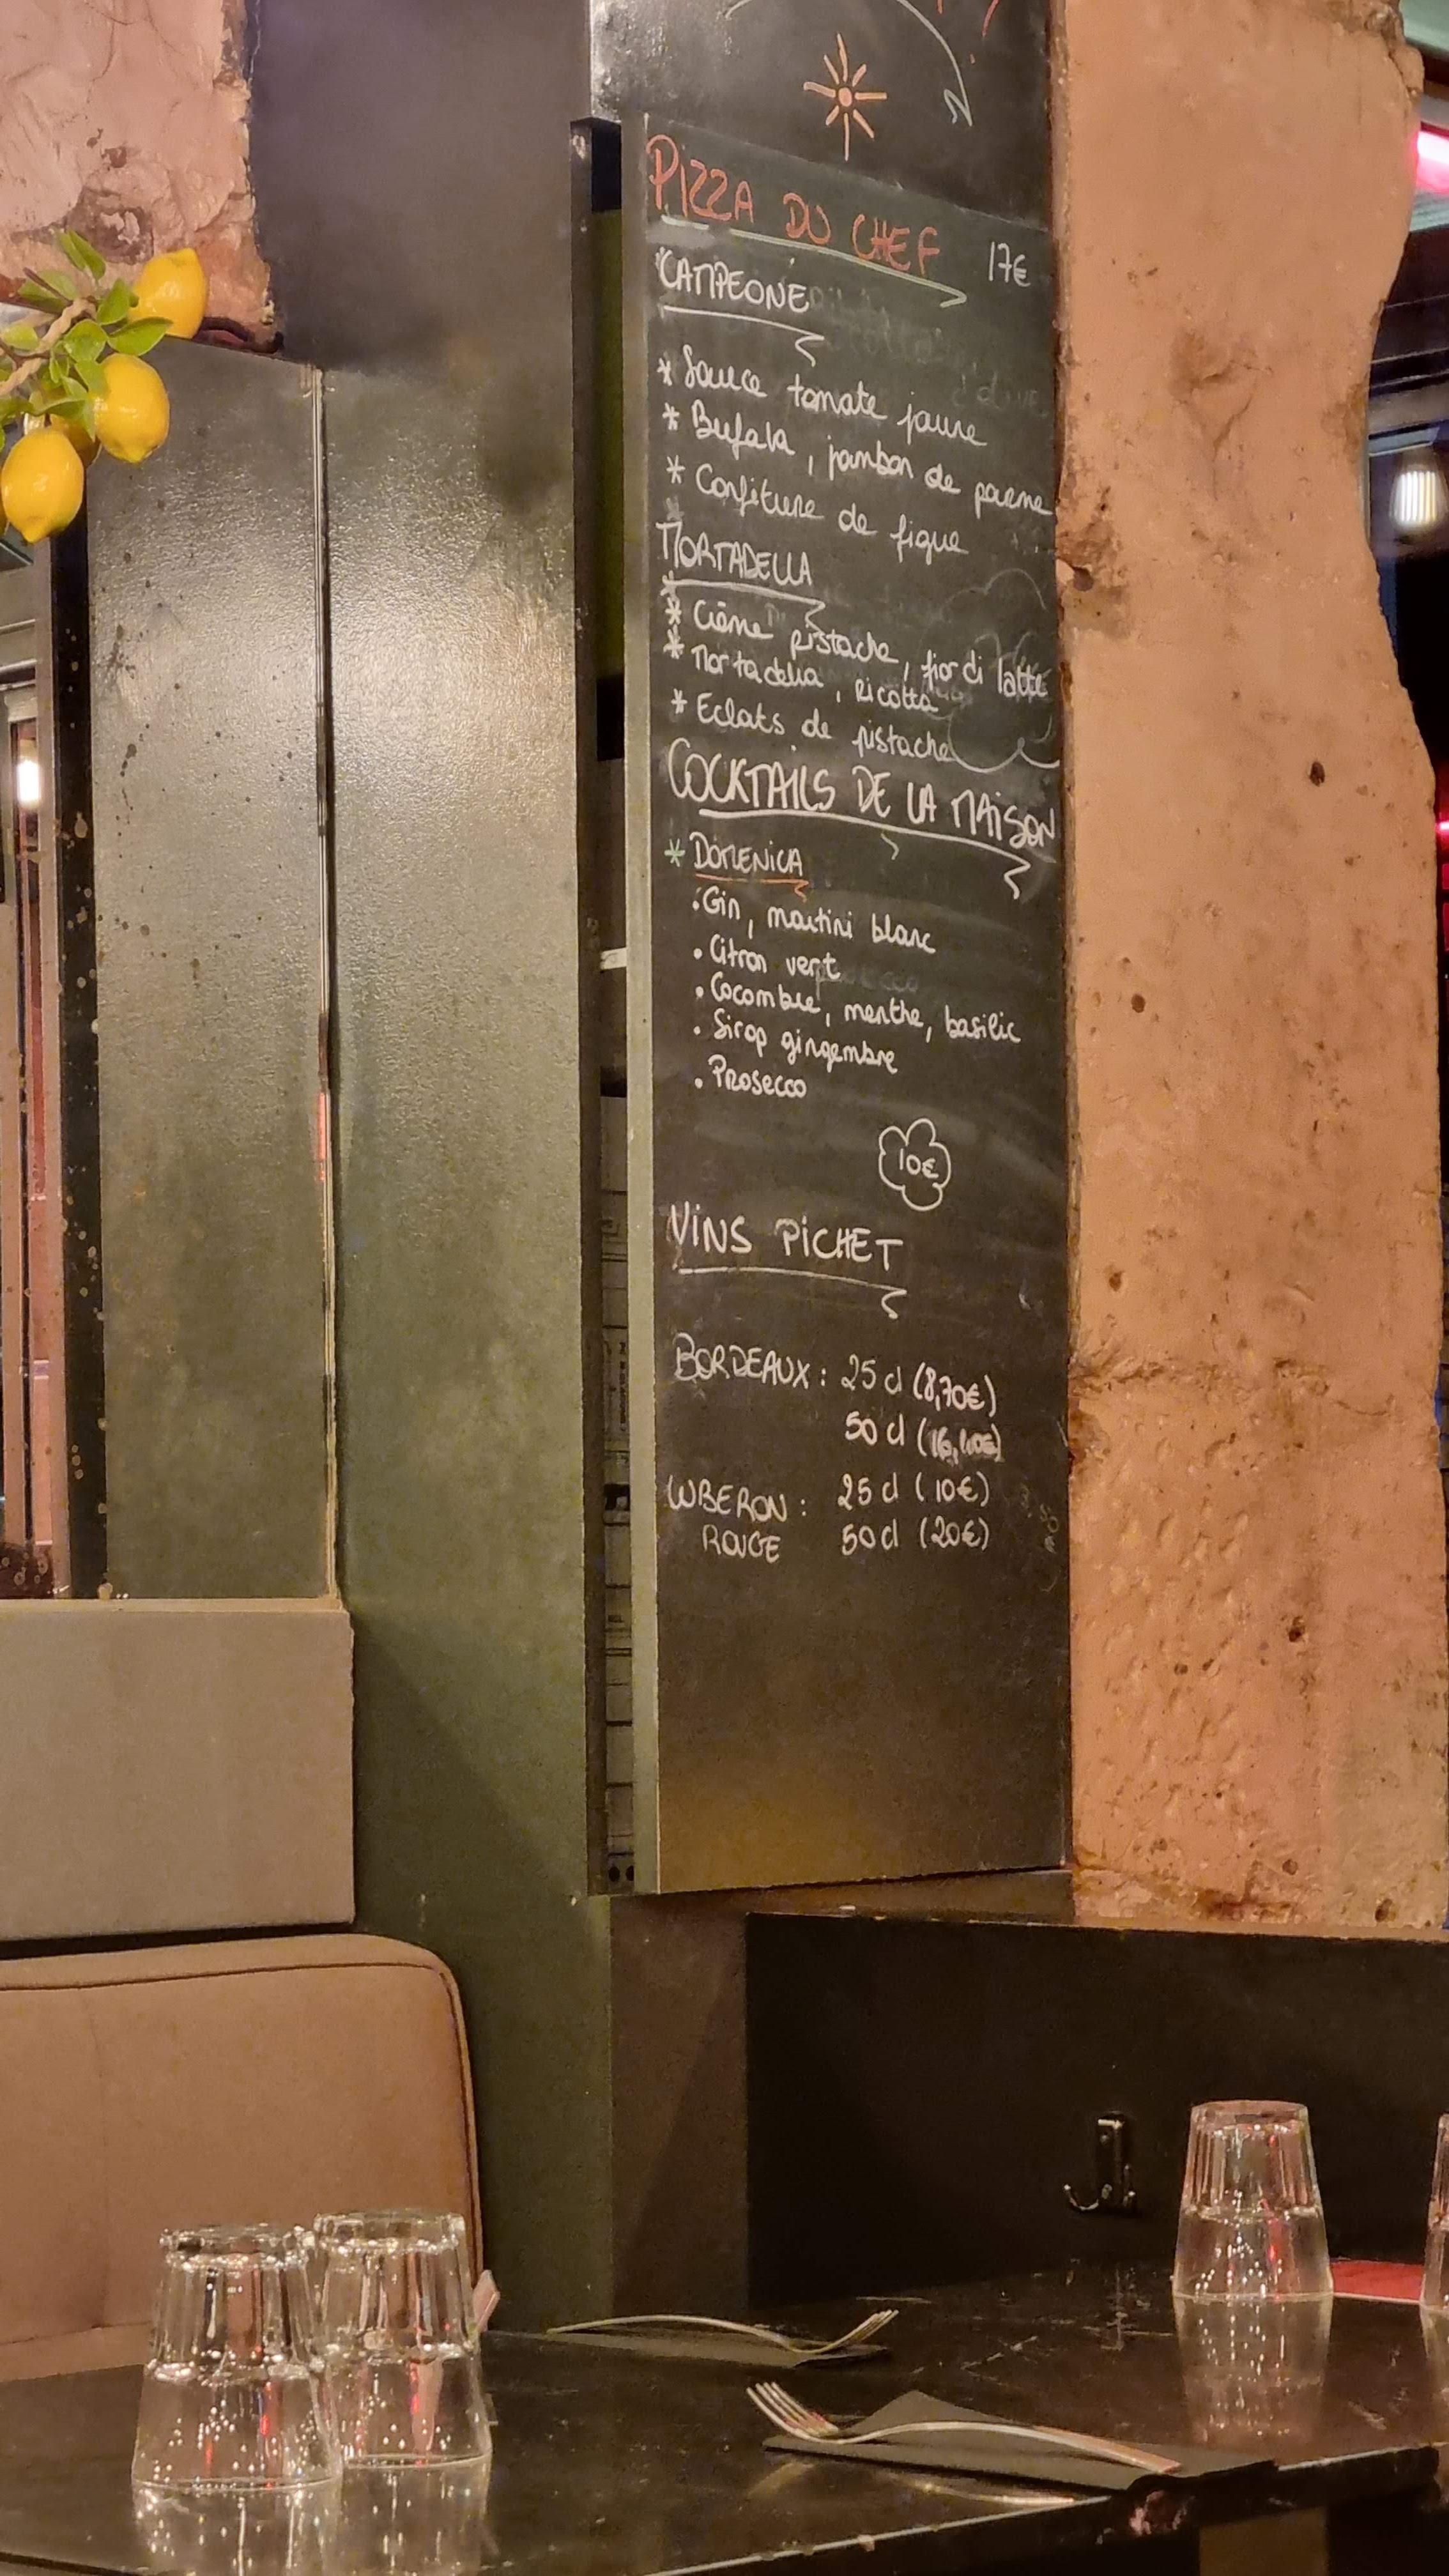 PIZZA DU CHEF 17€
CAMPEONE
* Sauce tomate jaune
* Bufala, jambon de parme
* Confiture de figue
MORTADELLA
* Crème pistache, fior di latte
* Mortadella, Ricotta
* Eclats de pistache
COCKTAILS DE LA MAISON
* DOMENICA
. Gin, martini blanc
. Citron vert
. Cocombre, menthe, basilic
. Sirop gingembre
. Prosecco
10€
VINS PICHET
BORDEAUX : 25 cl (8,70€)
50 cl (16,40€)
LUBERON : 25 cl (10€)
ROUGE 50 cl (20€)